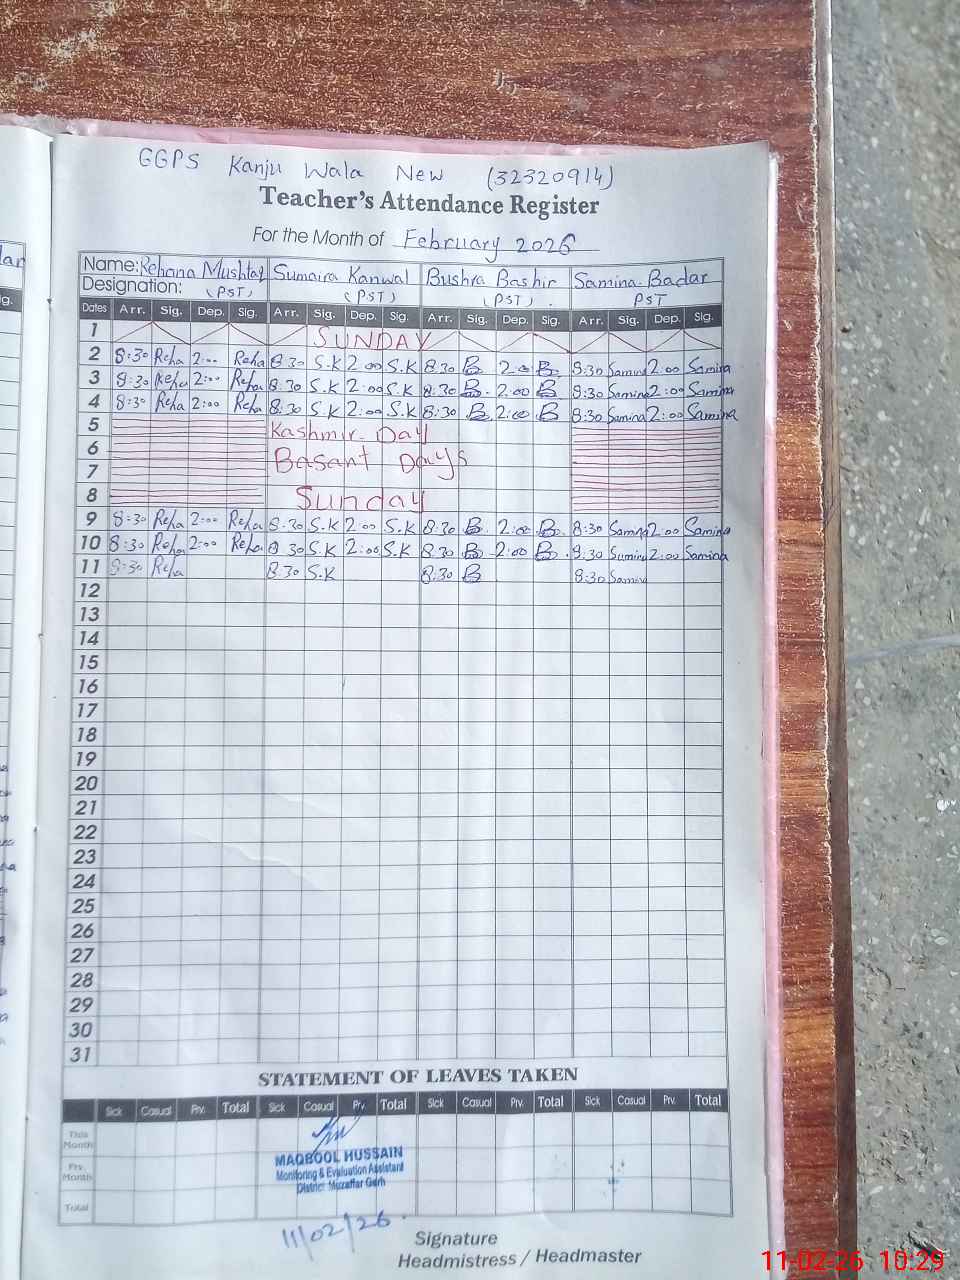 GGPS Kanju Wala New (32320914)
Teacher's Attendance Register
For the Month of February 2026
Name: Rehana Mushtaq Sumaira Kanwal Bushra Bashir Samina Badar
Designation: (PST) (PST) (PST) PST
Dates Arr. Sig. Dep. Sig. Arr. Sig. Dep. Sig. Arr. Sig. Dep. Sig. Arr. Sig. Dep. Sig.
1 SUNDAY
2 8:30 Reha 2:00 Reha 8:30 S.K 2:00 S.K 8:30 B 2:00 B 8:30 Samina 2:00 Samina
3 8:30 Reha 2:00 Reha 8:30 S.K 2:00 S.K 8:30 B 2:00 B 8:30 Samina 2:00 Samina
4 8:30 Reha 2:00 Reha 8:30 S.K 2:00 S.K 8:30 B 2:00 B 8:30 Samina 2:00 Samina
5 Kashmir Day
6 Basant Days
7
8 Sunday
9 8:30 Reha 2:00 Reha 8:30 S.K 2:00 S.K 8:30 B 2:00 B 8:30 Samina 2:00 Samina
10 8:30 Reha 2:00 Reha 8:30 S.K 2:00 S.K 8:30 B 2:00 B 8:30 Samina 2:00 Samina
11 8:30 Reha 8:30 S.K 8:30 B 8:30 Samina
12
13
14
15
16
17
18
19
20
21
22
23
24
25
26
27
28
29
30
31
STATEMENT OF LEAVES TAKEN
Sick Casual Prv. Total Sick Casual Prv. Total Sick Casual Prv. Total Sick Casual Prv. Total
This Month
Prv. Month
Total
MAQBOOL HUSSAIN
Monitoring & Evaluation Assistant
District Muzaffar Garh
11/02/26
Signature
Headmistress / Headmaster
11-02-26 10:29